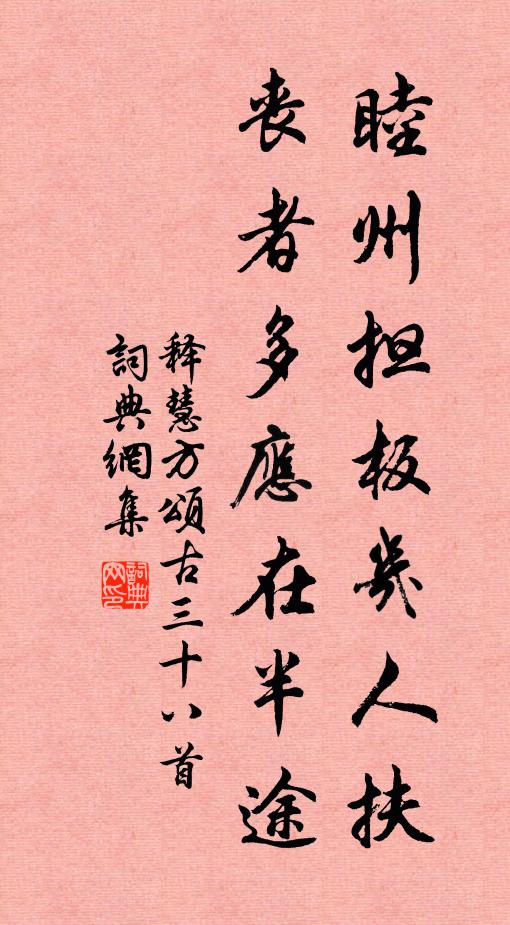 睦州担板幾人扶
丧者多應在半途
释慧方頌古三十八首
詞典網集
詞典网印